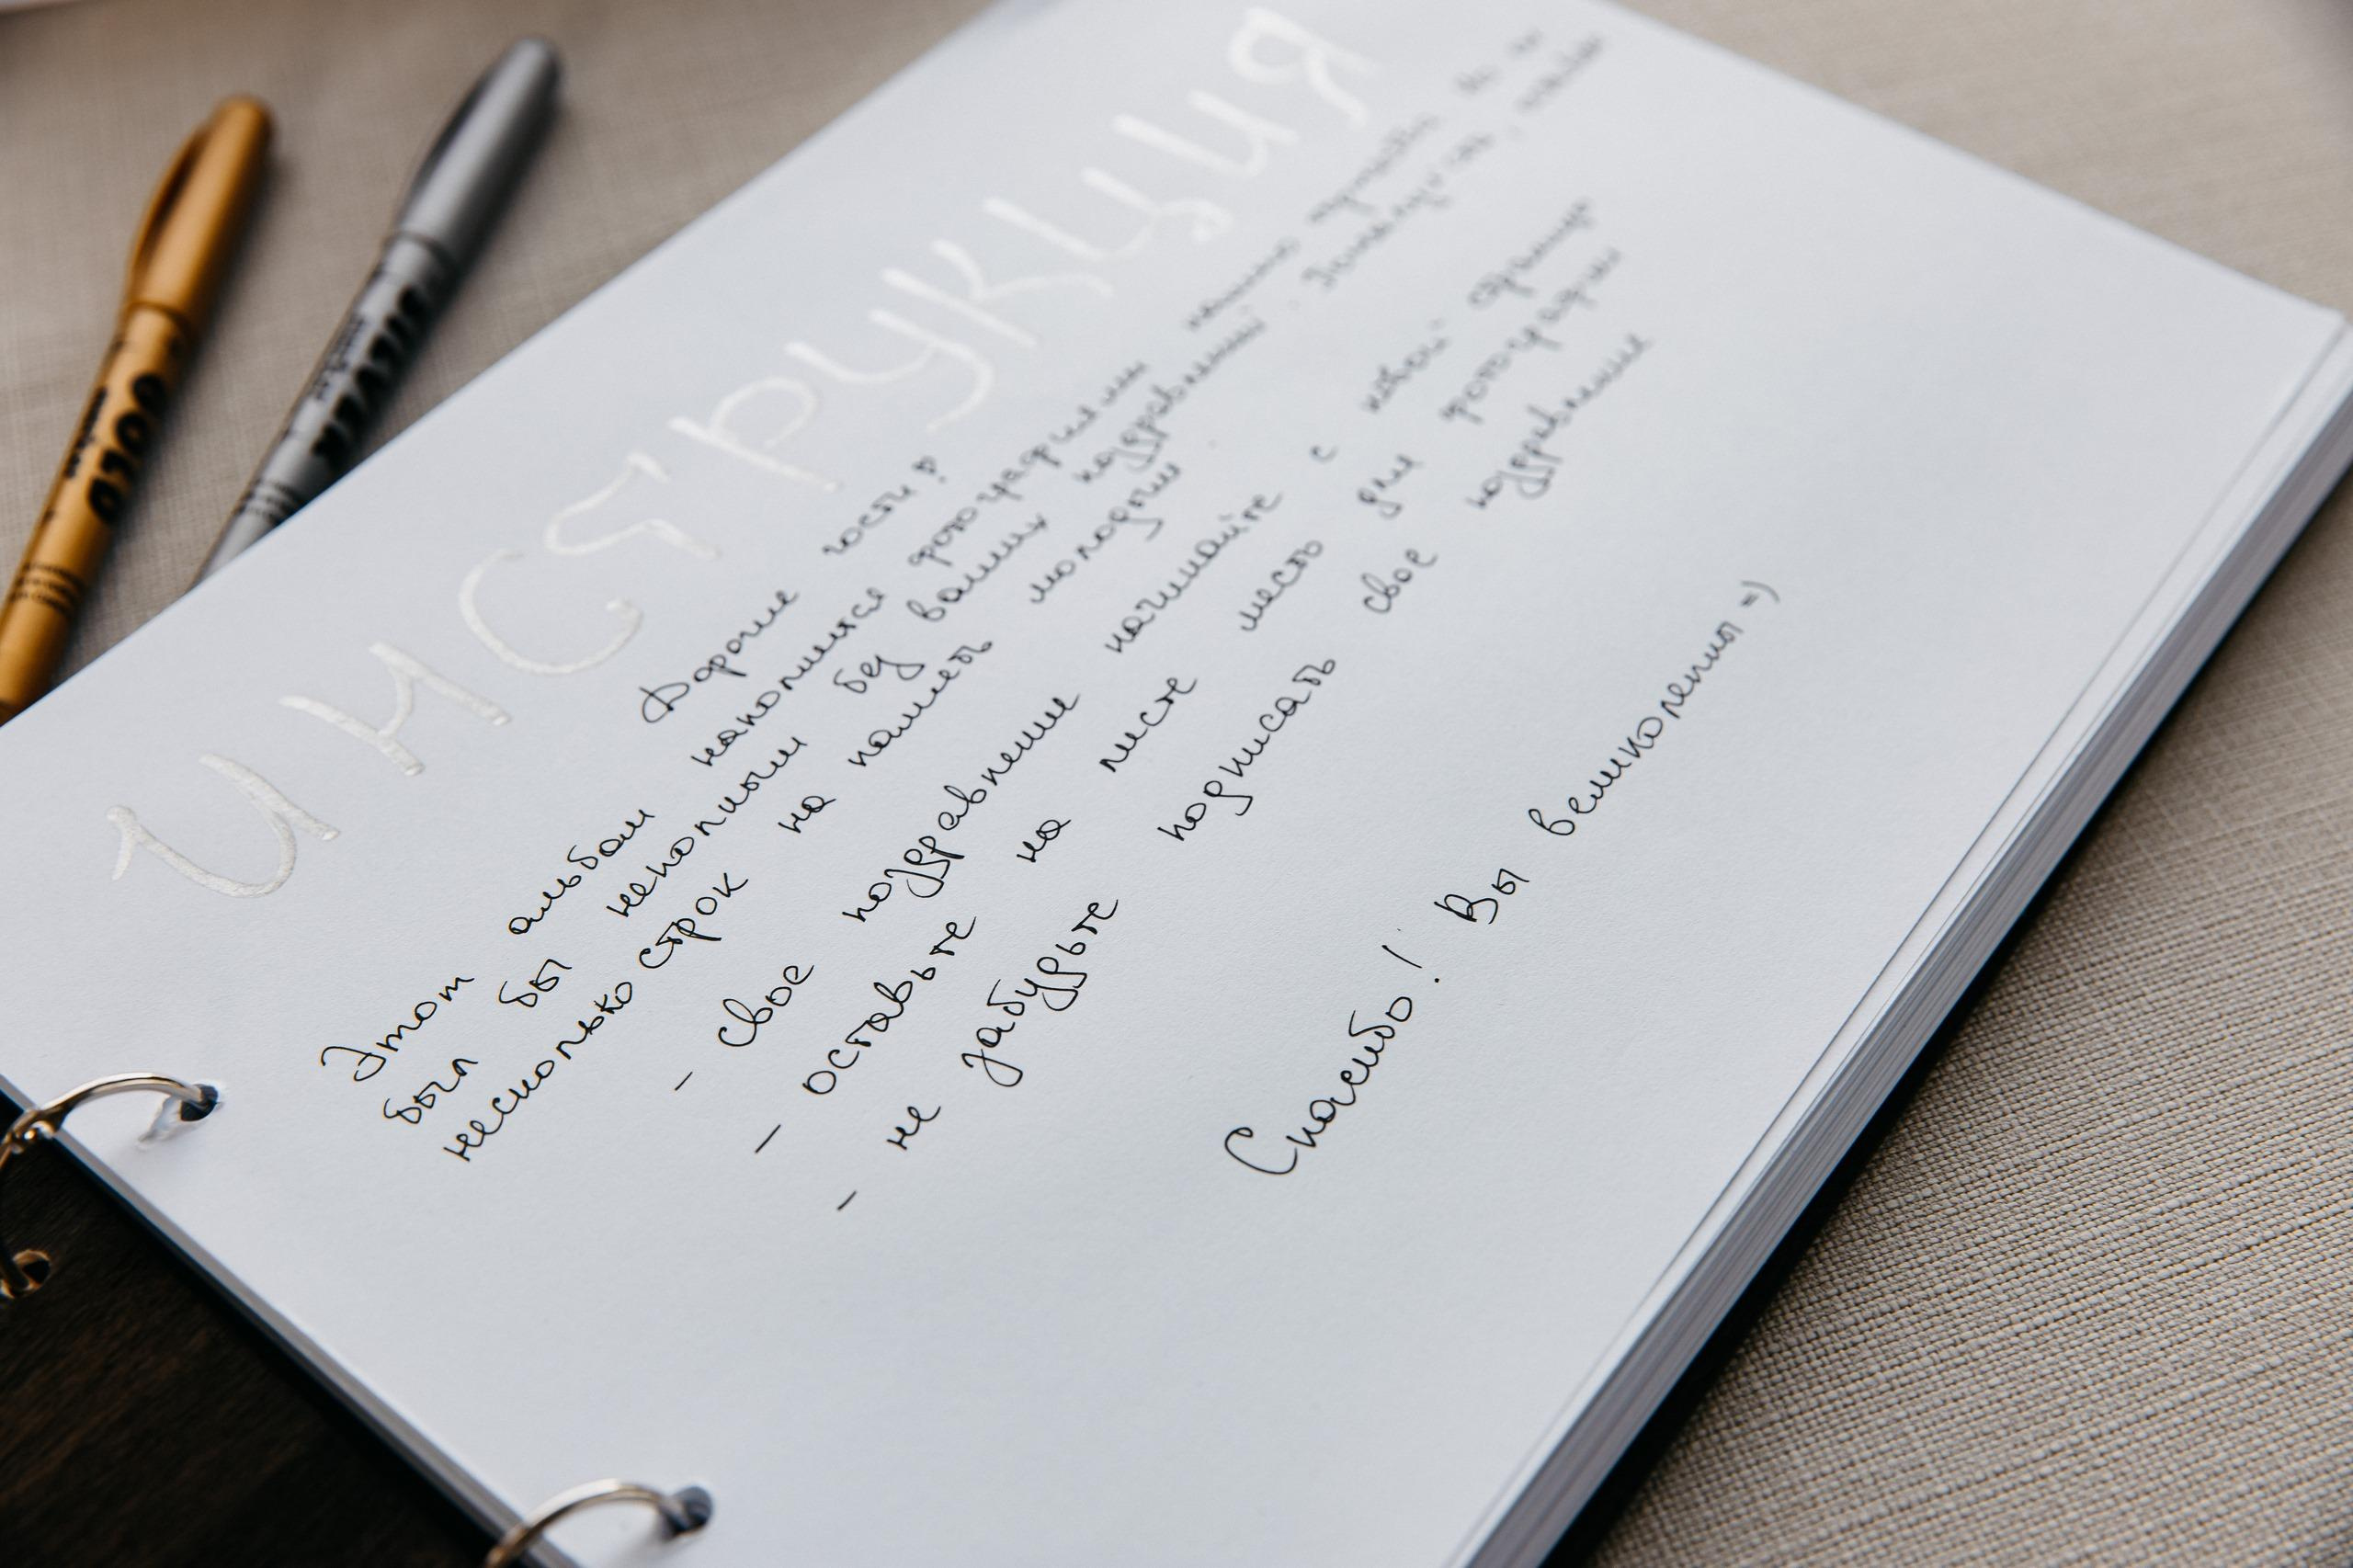 ИНСТРУКЦИЯ
Дорогие гости!
Этот альбом наполнится фотографиями
был бы неполным без ваших поздравлений. Пожалуйста,
несколько строк на память молодым.
- свое поздравление начинайте с новой страницы
- оставьте на листе место для фотографии
- не забудьте подписать свое поздравление
Спасибо! Вы великолепны =)
GOLD